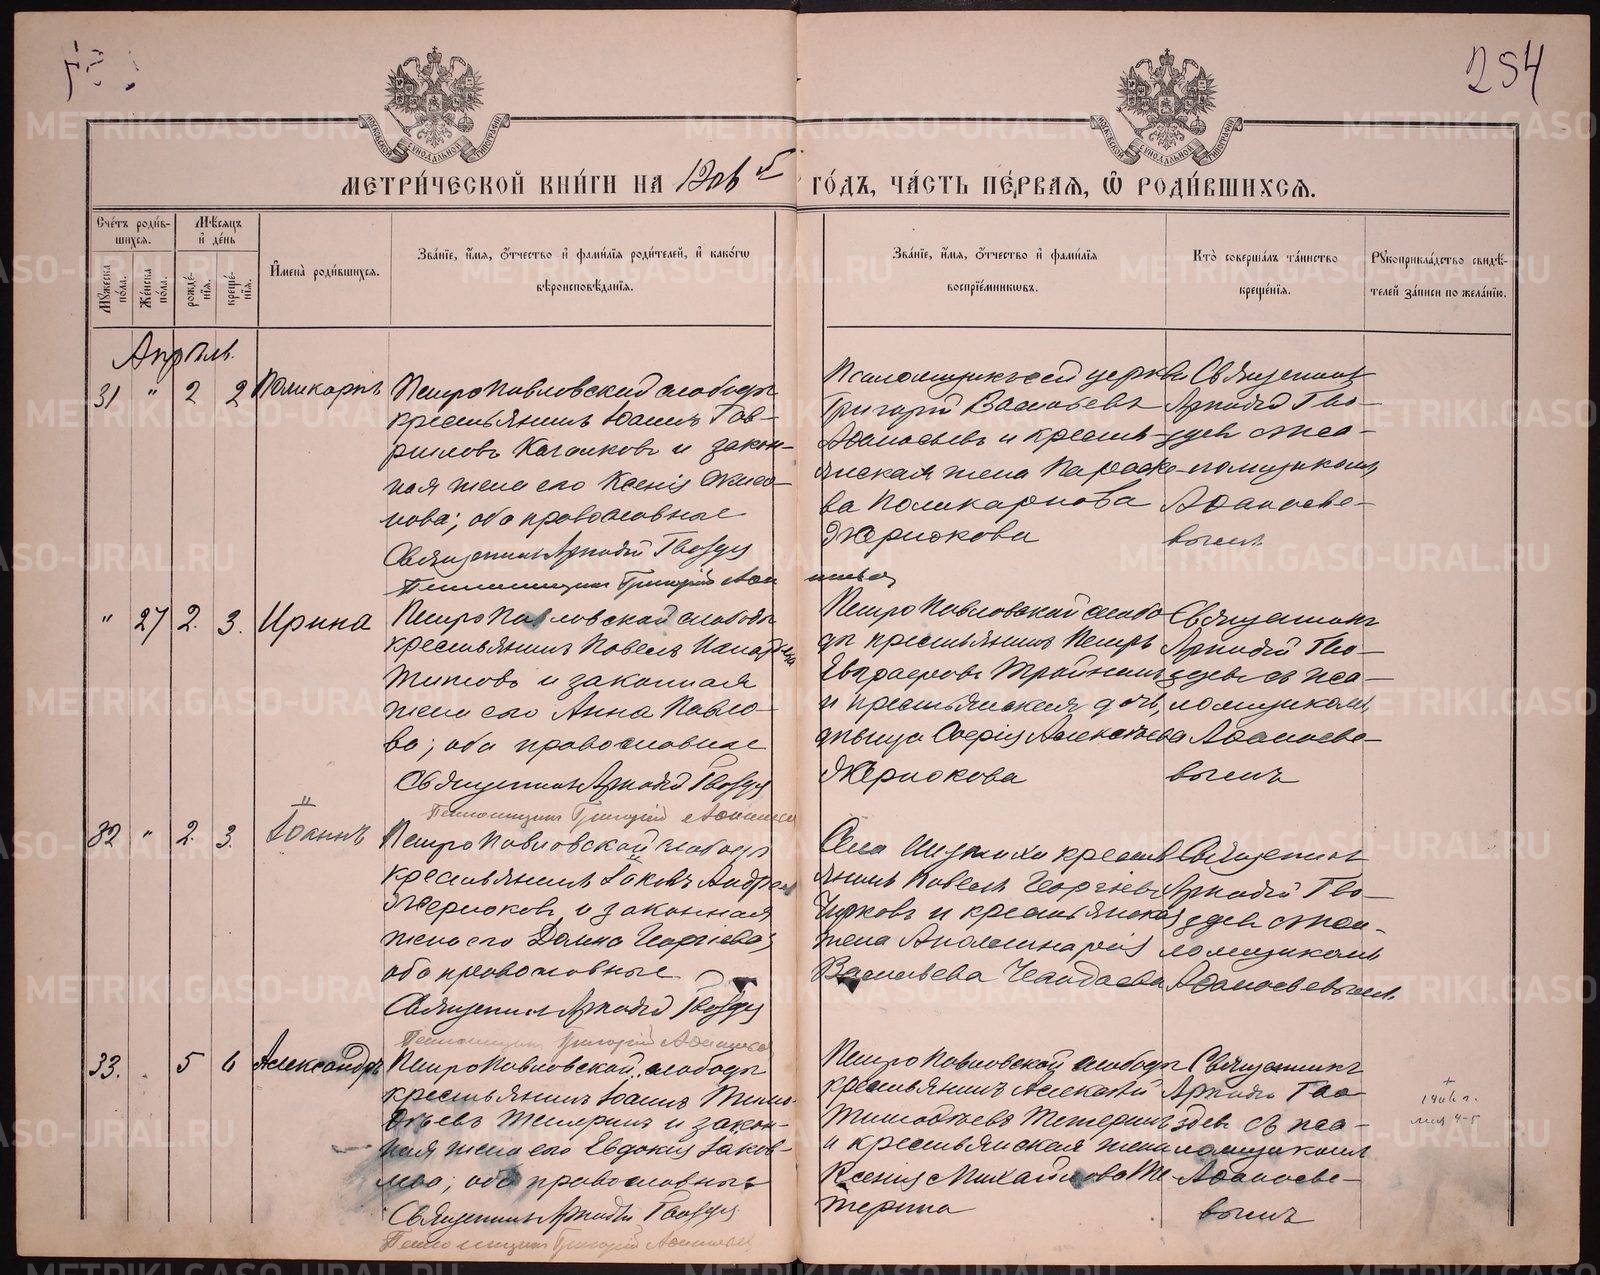 254
МЕТРИ́ЧЕСКОЙ КНИ́ГИ НА 1906 й ГО́ДЪ, ЧА́СТЬ ПЕ́РВАЯ, Ѽ РОДИ́ВШИХСЯ.
Сче́тъ роди́в-
шихся.
Мѣ́сяцъ
и҆ де́нь
Мꙋ́жеска по́ла.
Же́нска по́ла.
рожде́-
нїя.
креще́-
нїя.
И҆мена̀ роди́вшихся.
Зва́нїе, и҆́мя, ѻ҆́тчество и҆ фами́лїя роди́телей, и҆ како́гѡ
вѣроисповѣ́данїя.
Зва́нїе, и҆́мя, ѻ҆́тчество и҆ фами́лїя
воспрїе́мникѡвъ.
Кто̀ соверша́лъ та́инство
креще́нїя.
Рꙋкоприкла́дство свидѣ́-
телей за́писи по жела́нїю.
Апрѣль.
31 " 2 2 Поликарпъ
Петропавловской слободы
крестьянинъ Іоаннъ Гав-
риловъ Кагалковъ и закон-
ная жена его Ксенія
нова; оба православные
Священникъ Аркадій Гвоздевъ
Псаломщикъ Григорій
Псаломщикъ сей церкви
Григорій Васильевъ
Афанасьевъ и кресть-
янская жена Параске-
ва Поликарпова
Жернокова
Священникъ
Аркадій Гво-
здевъ съ пса-
ломщикомъ
Афанасье-
вымъ
" 27 2. 3. Ирина
Петропавловской слободы
крестьянинъ Павелъ
Титовъ и законная
жена его Анна Павло-
ва; оба православные
Священникъ Аркадій Гвоздевъ
Псаломщикъ Григорій Афанасьевъ
Петропавловской слобо
ды крестьянинъ Петръ
Евграфовъ
и крестьянская дочь,
дѣвица Софія Алексѣева
Жернокова
Священникъ
Аркадій Гво-
здевъ съ пса-
ломщикомъ
Афанасье-
вымъ
32 " 2. 3. Іоаннъ
Петропавловской слободы
крестьянинъ Іаковъ Андреевъ
Жерноковъ и законная
жена его Домна Георгіева;
оба православные
Священникъ Аркадій Гвоздевъ
Псаломщикъ Григорій Афанасьевъ
Села кресть
янинъ Павелъ Георгіевъ
Чирковъ и крестьянская
жена Аполлинарія
Васильева
Священникъ
Аркадій Гво-
здевъ съ пса-
ломщикомъ
Афанасьевымъ
33. 5 6 Александръ
Петропавловской слободы
крестьянинъ Іоаннъ Тимо-
ѳѣевъ Тетеринъ и закон-
ная жена его Евдокія Іаков-
лева; оба православные
Священникъ Аркадій Гвоздевъ
Псаломщикъ Григорій Афанасьевъ
Петропавловской слободы
крестьянинъ Алексѣй
Тимоѳѣевъ Тетеринъ
и крестьянская жена
Ксенія Михайлова Те-
терина
Священникъ
Аркадій Гво
здевъ съ пса-
ломщикомъ
Афанасье-
вымъ
+
1906 г.
METRIKI.GASO-URAL.RU